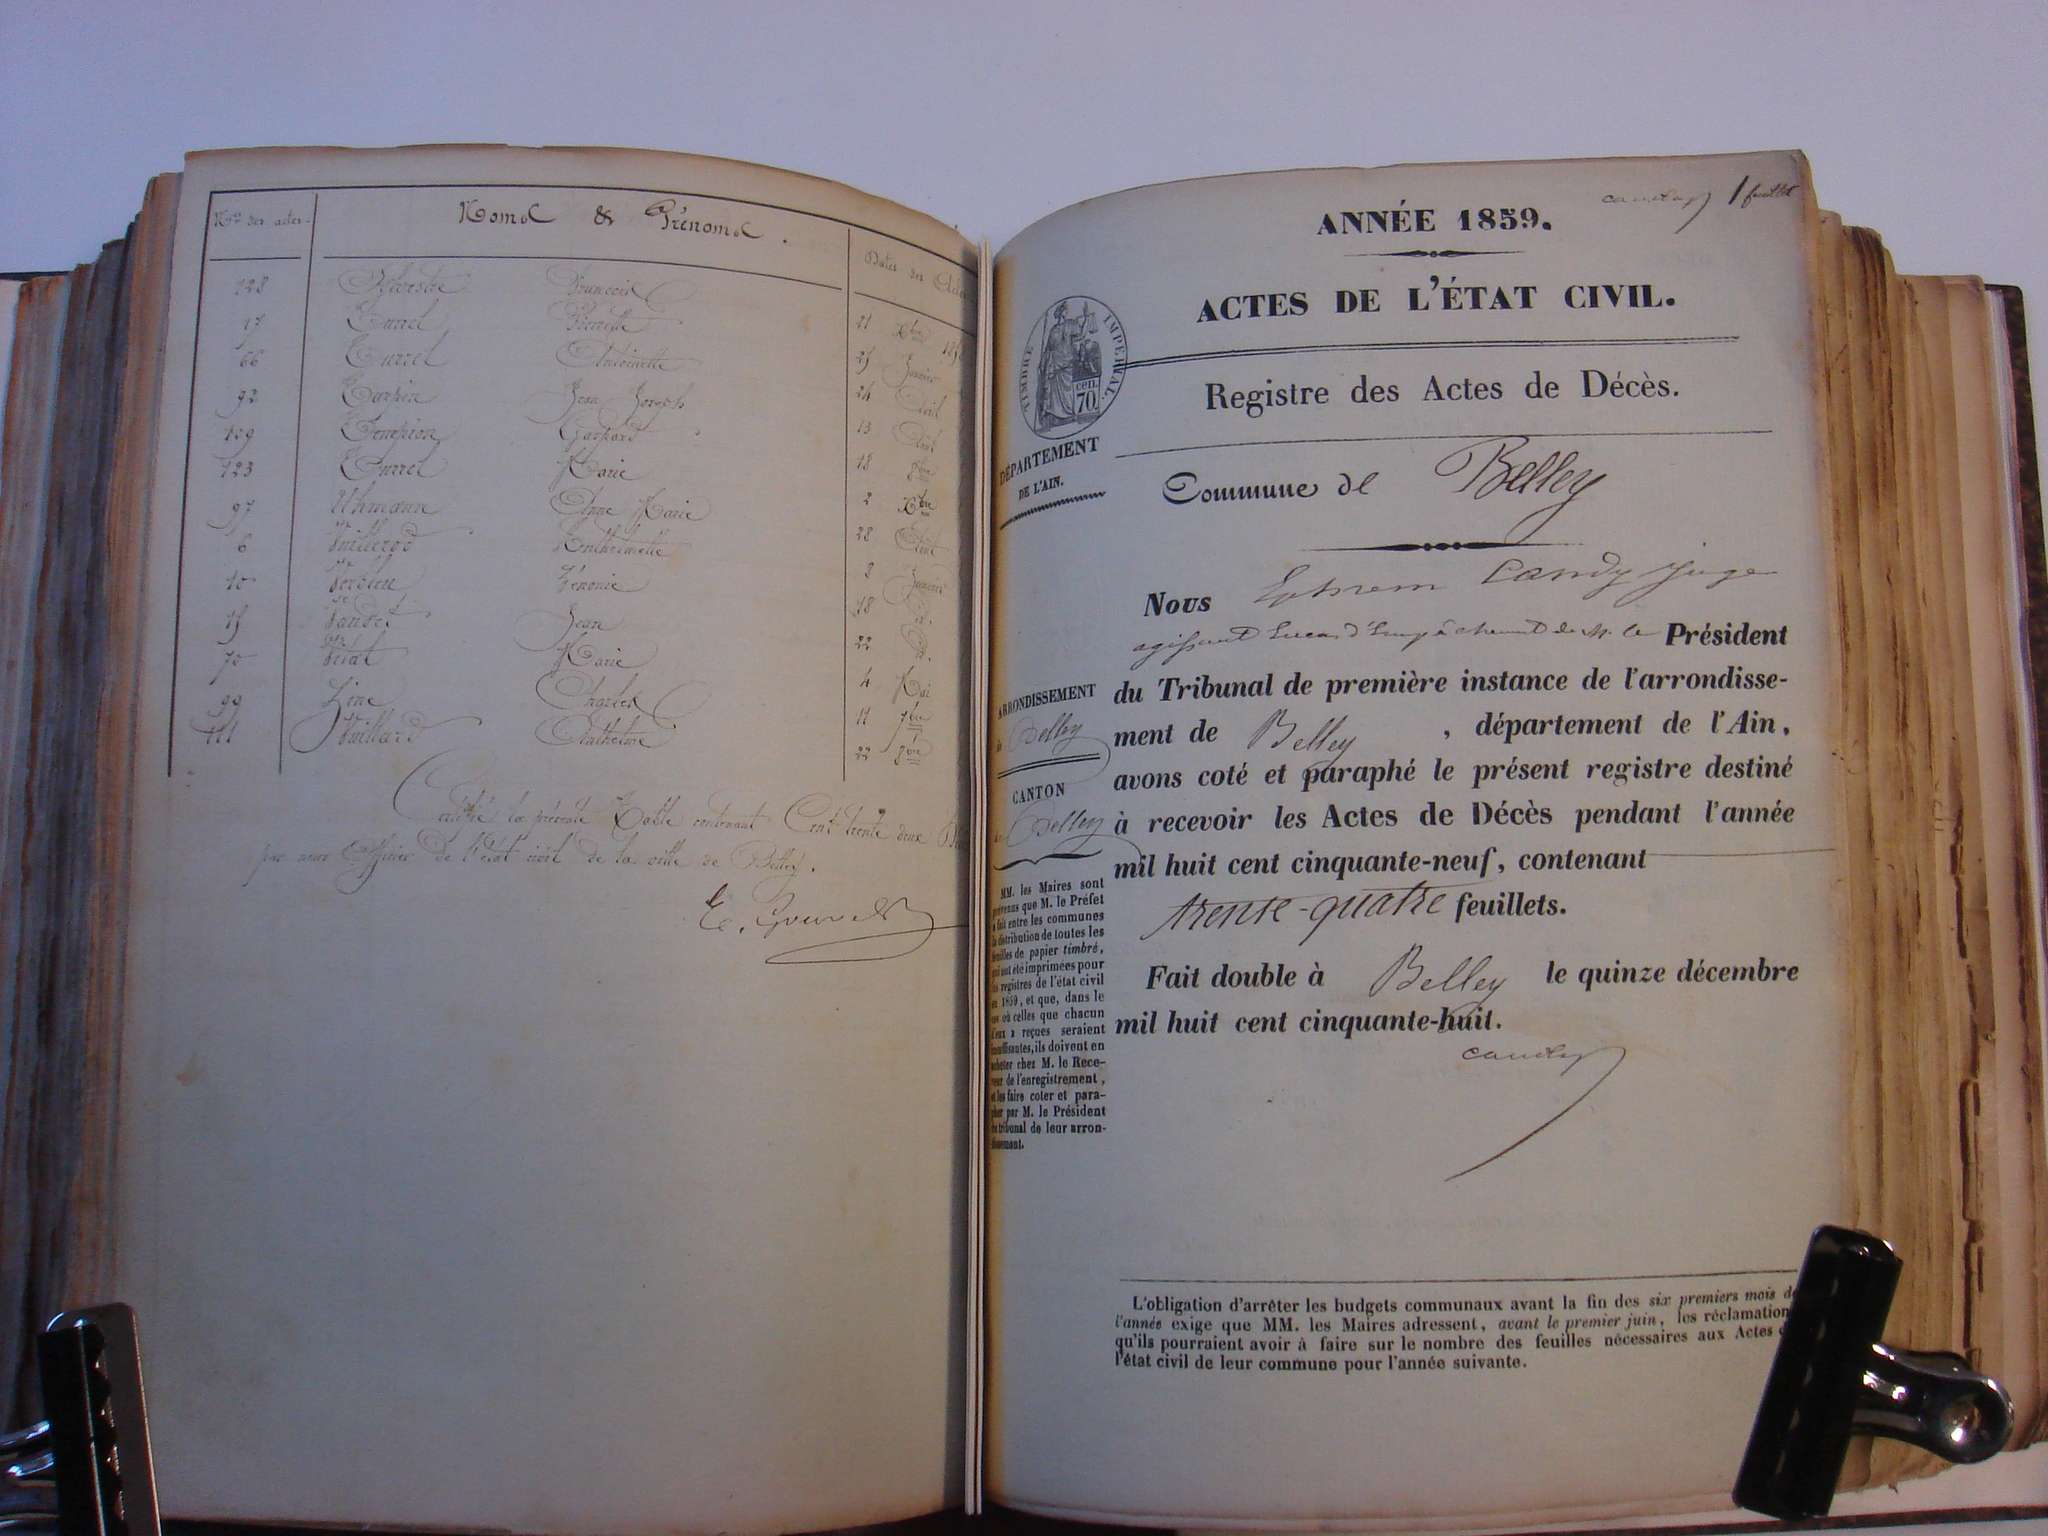 Nos des actes
Noms & Prénoms.
Dates des
128 François 21 Xbre
17 Turrel Pierrette 25 Janvier
66 Turrel Antoinette 24 Avril
92 Jean Joseph 13 Août
109 Gaspard 18 8bre
123 Turrel Marie 2 Xbre
97 Uhmann Anne Marie 28 Août
6 Vuillerod Anthelmette 3 Janvier
10 Zénonie 18 d°
15 Jean 22 d°
70 Marie 4 Mai
99 Charles 11 7bre
111 Vuillard Anthelme 22 8bre
la présente Table contenant Cent trente deux
par nous Officier de l'état civil de la ville de Belley.
1 feuillet
ANNÉE 1859.
ACTES DE L'ÉTAT CIVIL.
TIMBRE IMPÉRIAL.
cen.
70
Registre des Actes de Décès.
DÉPARTEMENT
DE L'AIN.
Commune de Belley
Nous Ephrem Candy Juge
agissant d'Empêchement de M. le Président
du Tribunal de première instance de l'arrondisse-
ment de Belley, département de l'Ain,
avons coté et paraphé le présent registre destiné
à recevoir les Actes de Décès pendant l'année
mil huit cent cinquante-neuf, contenant
trente-quatre feuillets.
Fait double à Belley le quinze décembre
mil huit cent cinquante-huit.
Candy
ARRONDISSEMENT
Belley
CANTON
Belley
MM. les Maires sont
prévenus que M. le Préfet
a fait entre les communes
la distribution de toutes les
feuilles de papier timbré,
qui ont été imprimées pour
les registres de l'état civil
en 1859, et que, dans le
cas où celles que chacun
d'eux a reçues seraient
insuffisantes, ils doivent en
acheter chez M. le Rece-
veur de l'enregistrement,
et les faire coter et para-
pher par M. le Président
du tribunal de leur arron-
dissement.
L'obligation d'arrêter les budgets communaux avant la fin des six premiers mois de
l'année exige que MM. les Maires adressent, avant le premier juin, les réclamation
qu'ils pourraient avoir à faire sur le nombre des feuilles nécessaires aux Actes d
l'état civil de leur commune pour l'année suivante.